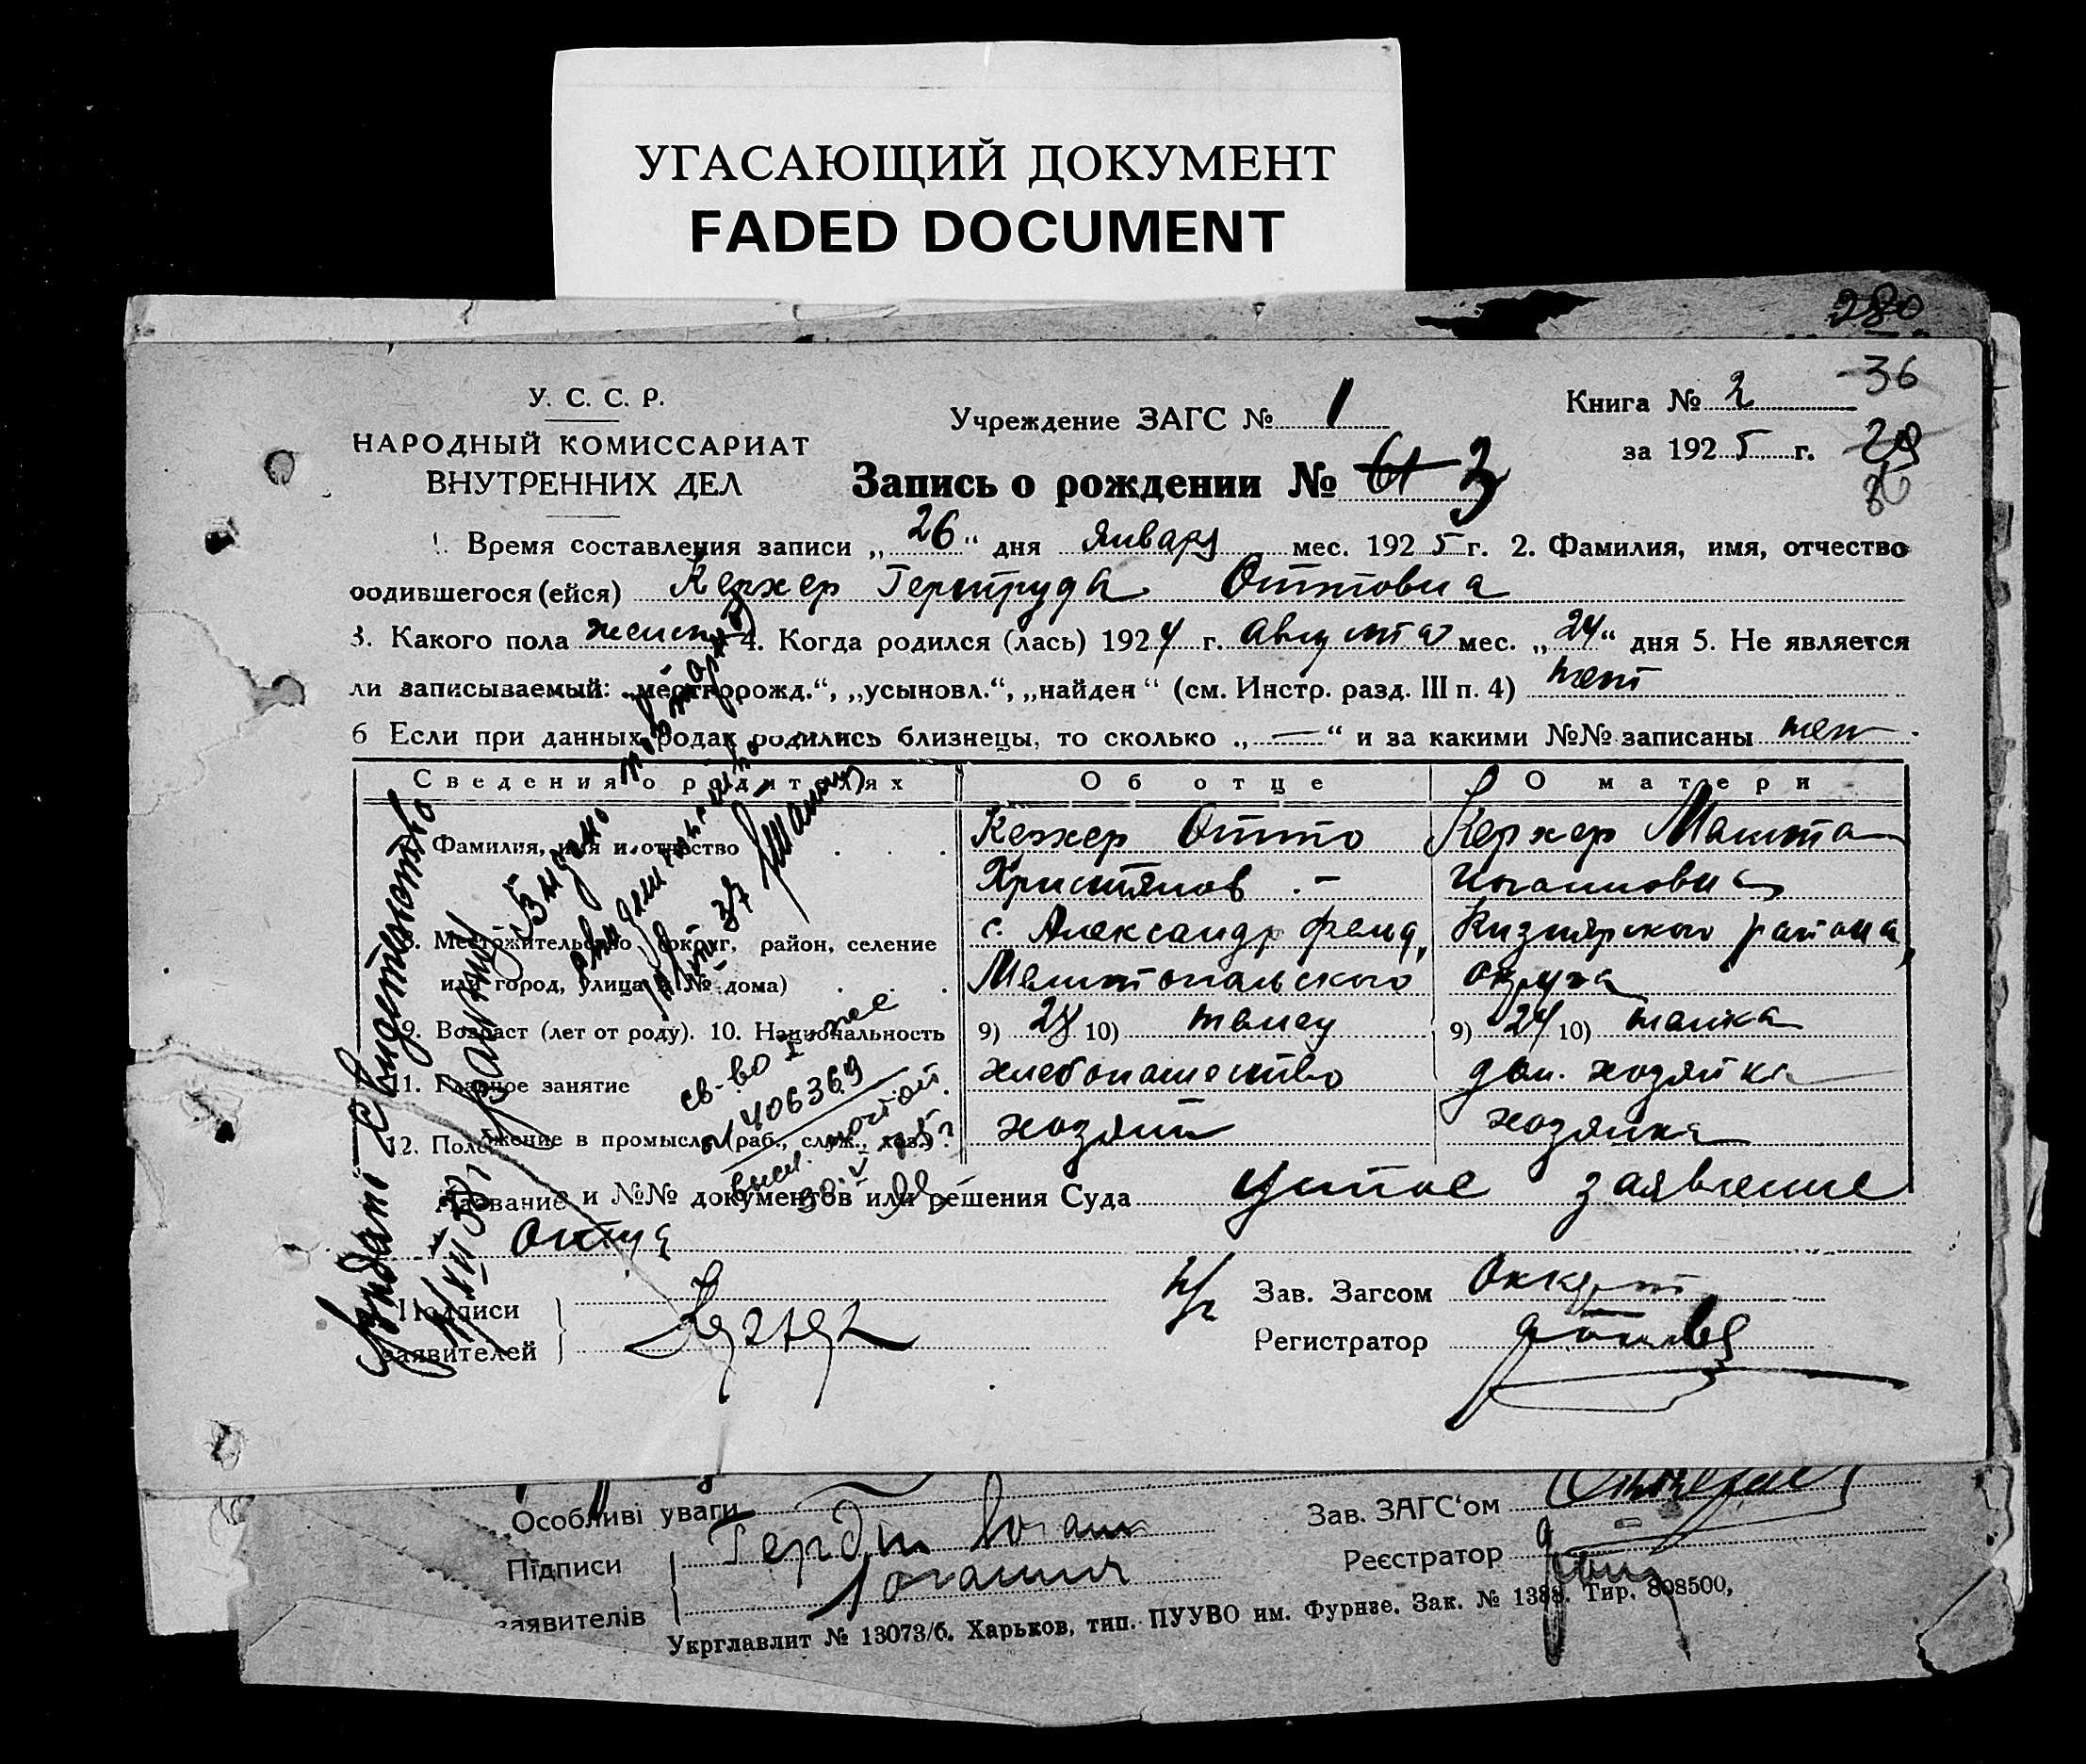 УГАСАЮЩИЙ ДОКУМЕНТ
FADED DOCUMENT
280
36
У. С. С. Р.
НАРОДНЫЙ КОМИССАРИАТ
ВНУТРЕННИХ ДЕЛ
Учреждение ЗАГС № 1
Книга № 2
за 1925 г.
Запись о рождении № 3
1. Время составления записи „26“ дня января мес. 1925 г. 2. Фамилия, имя, отчество
родившегося (ейся) Керхер Гертруда Оттовна
3. Какого пола женск 4. Когда родился (лась) 1924 г. августа мес. „24“ дня 5. Не является
ли записываемый: „мертворожд.“, „усыновл.“, „найден“ (см. Инстр. разд. III п. 4) нет
6 Если при данных родах родились близнецы, то сколько „—“ и за какими №№ записаны нет
Сведения о родителях Об отце О матери
Фамилия, имя и отчество Керхер Отто Керхер Марта
Христянов
8. Местожительство (округ, район, селение с. Александрфельд, Кизиярского района,
или город, улица и № дома) Мелитопольского округа
9. Возраст (лет от роду). 10. Национальность 9) 28 10) немец 9) 24 10) немка
11. Главное занятие хлебопашество дом. хозяйка
12. Положение в промысле (раб., служ., хоз.) хозяин хозяйка
Название и №№ документов или решения Суда устное заявление
отца
Подписи
заявителей
Зав. Загсом
Регистратор
Выдано свидетельство
Выдано повторное
св-во
406369
Особливі уваги
Підписи
заявителів
Зав. ЗАГС'ом
Реєстратор
Укрглавлит № 13073/б. Харьков, тип. ПУУВО им. Фурнзе. Зак. № 1388. Тир. 808500,